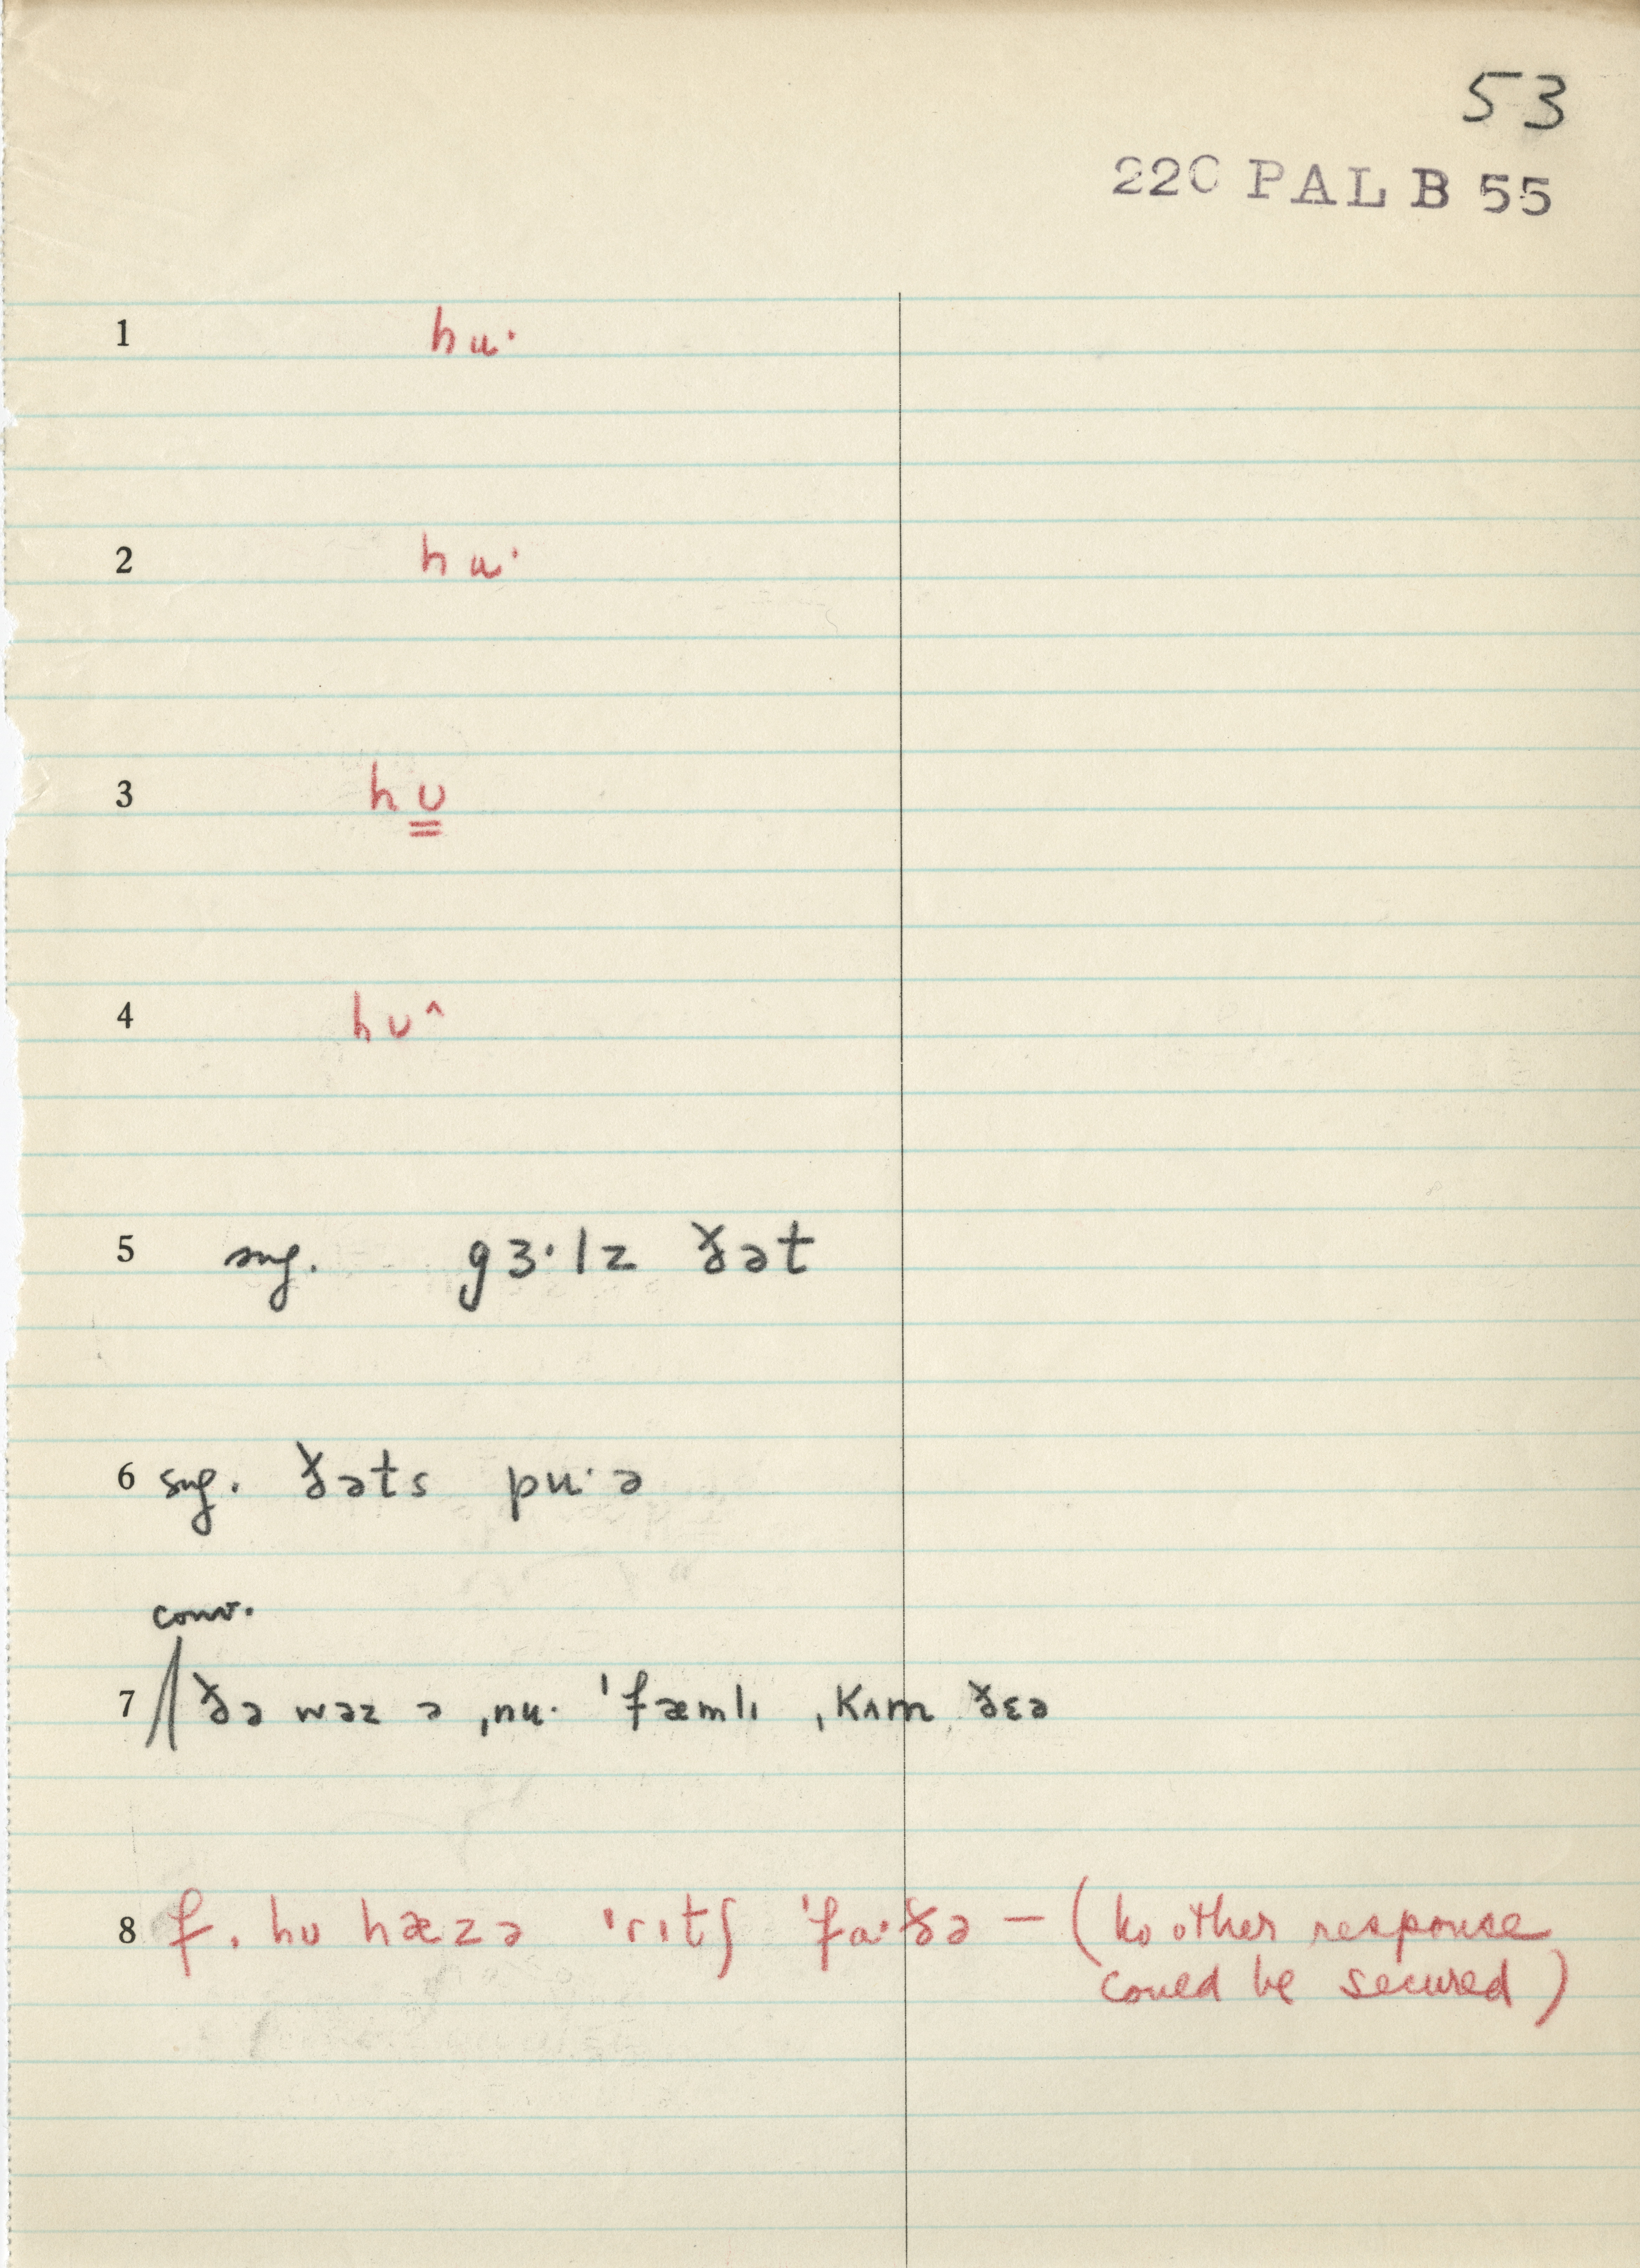 53
220 PAL B 55
1 hu·
2 hu·
3 hʊ
4 hʊ^
5 sug. gɜ·lz ðət
6 sug. ðəts pu·ə
conv.
7 ðə wəz ə ˌnu· ˈfæmlɪ ˌkʌm ðɛə
8 f. hʊ hæzə ˈrɪtʃ ˈfɑ·ðə – (No other response
could be secured)